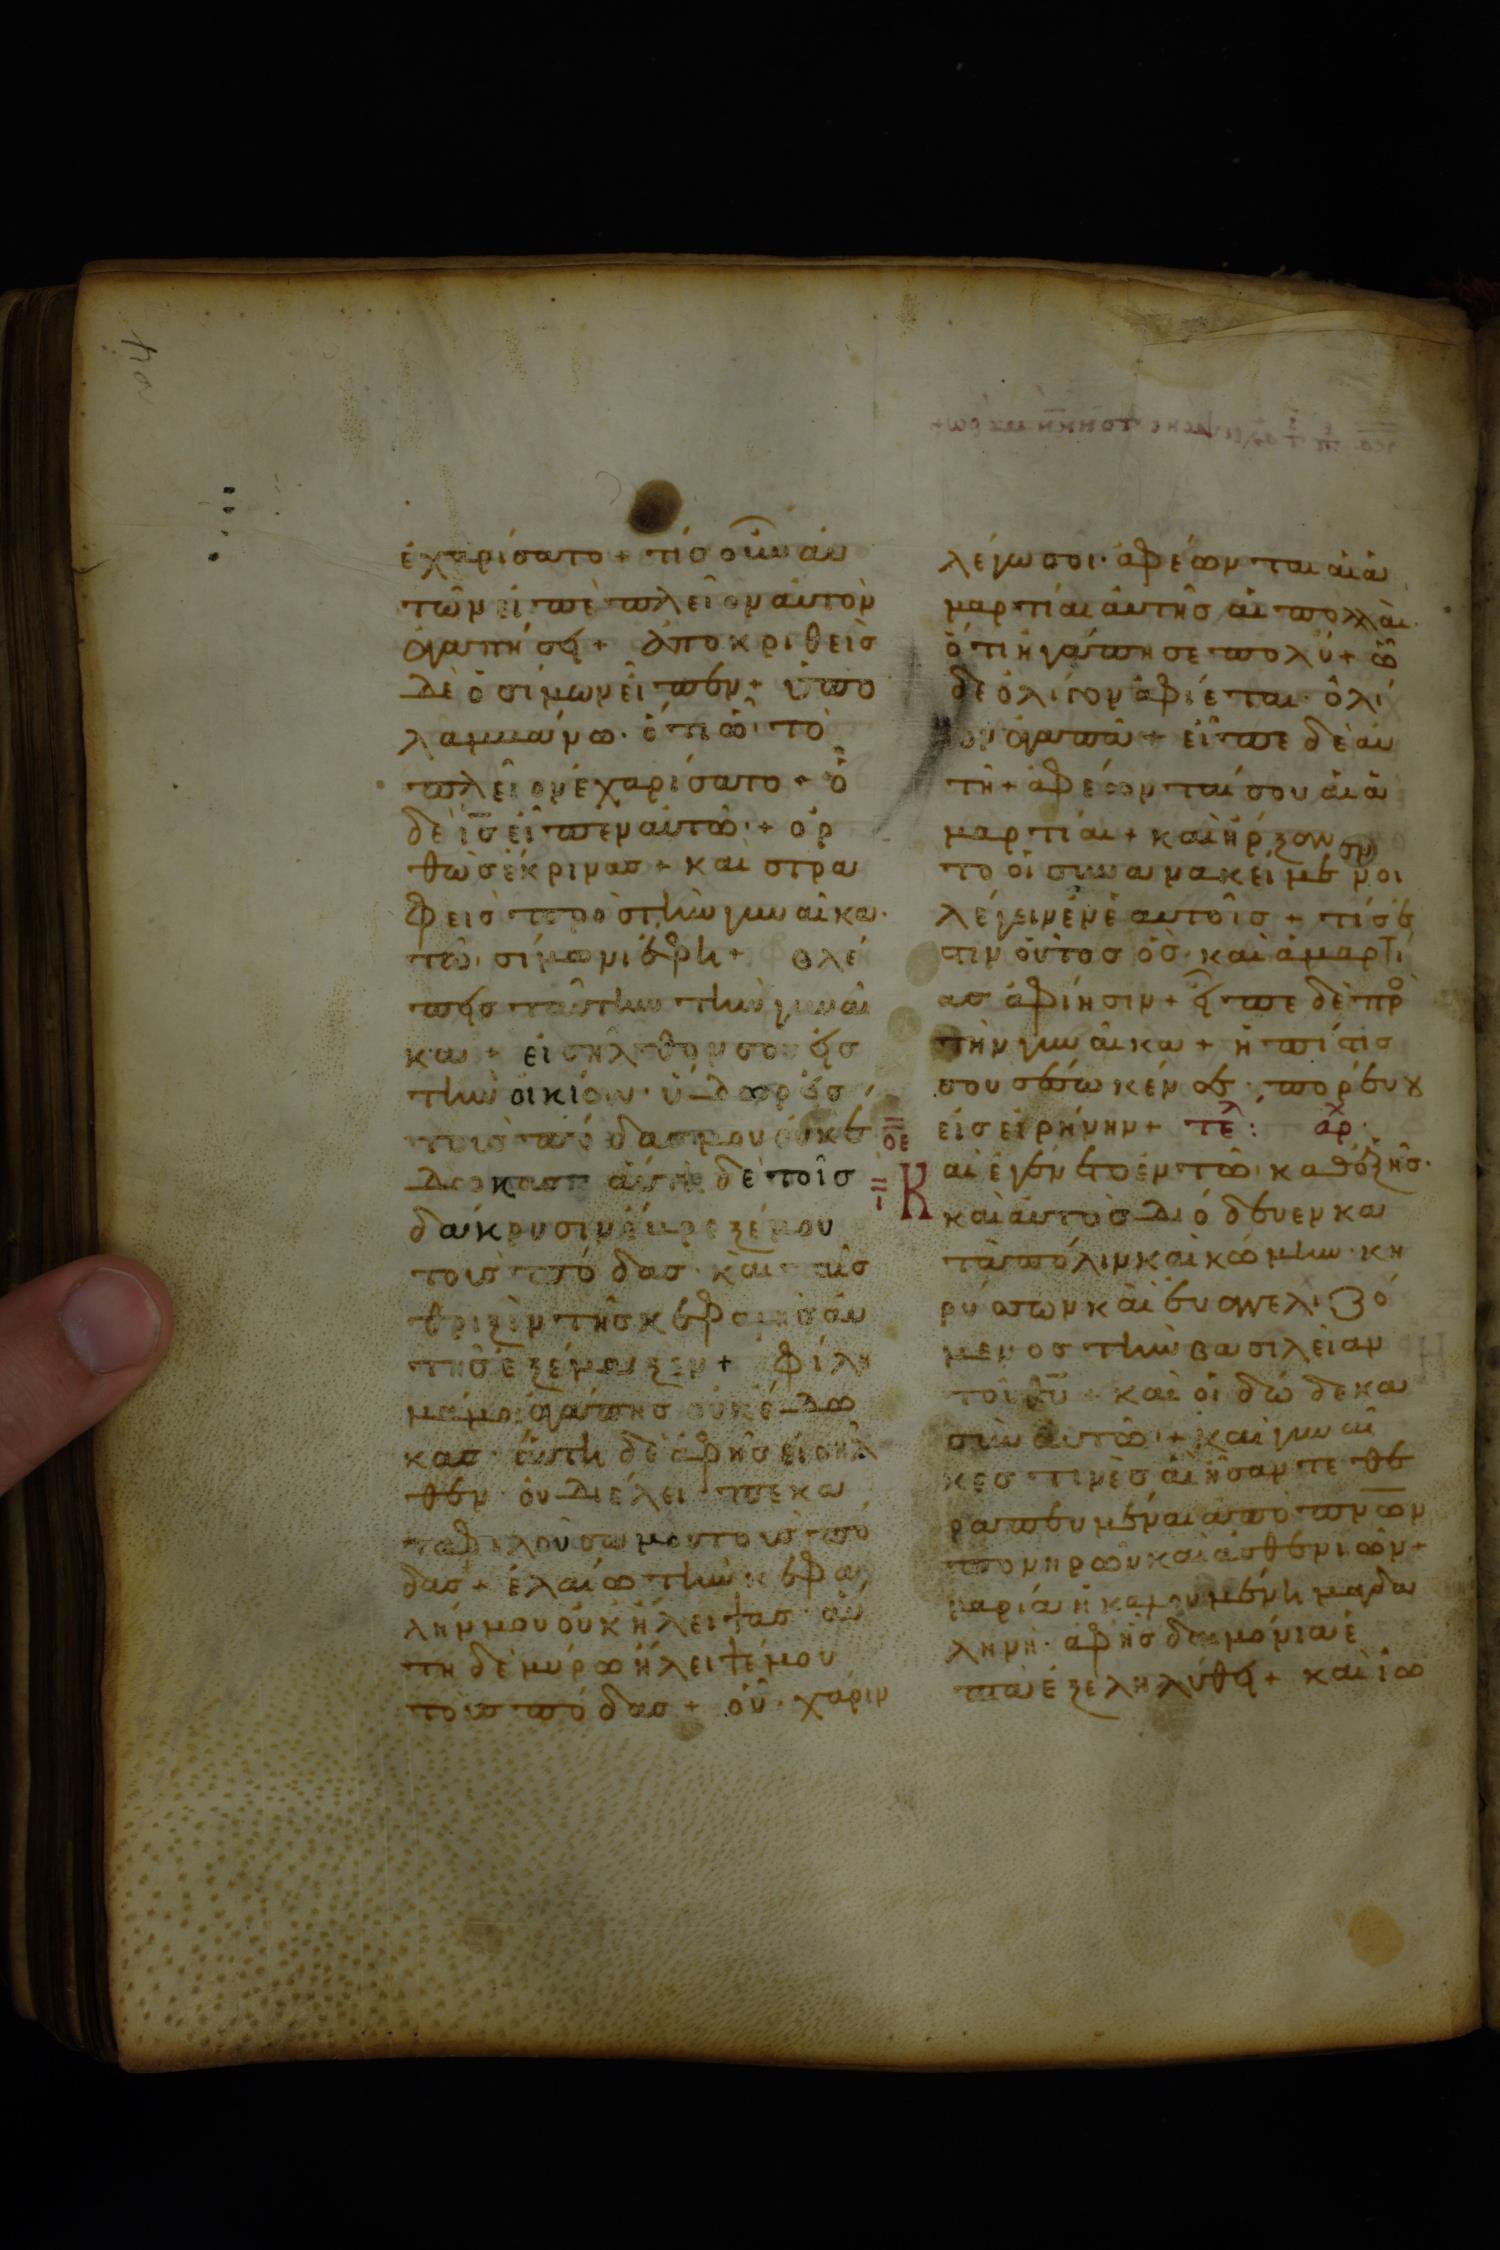 ἐχαρίσατο + τίς οὖν αὐ
τῶν εἰπὲ πλεῖον αὐτὸν
ἀγαπήσει + ἀποκριθεὶς
δὲ ὁ σίμων εἶπεν + ὑπο
λαμβάνω · ὅτι ὧ τὸ
πλεῖον ἐχαρίσατο + ὁ
δὲ ις εἶπεν αὐτῶ · + ὀρ
θῶς ἔκρινας + καὶ στρα
φεὶς πρὸς τὴν γυναῖκα ·
τῶ σίμωνι ἔφη + βλέ
πεις ταύτην τὴν γυναῖ
κα + εἰσῆλθον σου εἰς
τὴν οἰκίαν · ὕδωρ εἰς
τοὺς πόδας μου οὐκ ἔ
δωκας αὕτη δὲ τοῖς
δάκρυσιν ἔβρεξέ μου
τοὺς πόδας · καὶ ταῖς
θριξὶν τῆς κεφαλῆς αὐ
τῆς ἐξέμαξεν + φίλη
μά μοι ἀγάπης οὐκ ἔδω
κας · αὕτη δὲ ἀφ ἧς εἰσῆλ
θεν οὐ διέλειπε κα
ταφιλοῦσα μου τοὺς πό
δας + ἐλαίω τὴν κεφα
λήν μου οὐκ ἤλειψας · αὕ
τη δὲ μύρω ἤλειψέ μου
τοὺς πόδας + οὗ χάριν
λέγω σοι · ἀφέωνται αἱ ἁ
μαρτίαι αὐτῆς αἱ πολλαὶ ·
ὅτι ἠγάπησε πολύ + ὧ
δὲ ὀλίγον ἀφίεται · ὀλί
γον ἀγαπᾶ + εἶπε δὲ αὐ
τῆ + ἀφέωνταί σου αἱ ἁ
μαρτίαι + καὶ ἤρξαν
το οἱ συνανακείμενοι
λέγειν ἐν ἑαυτοῖς + τίς ἐσ
τιν οὗτος ὃς καὶ ἁμαρτί
ας ἀφίησιν + εἶπε δὲ πρὸ
τὴν γυναῖκα + ἡ πίστις
σου σέσωκέν σε · πορεύου
εἰς εἰρήνην + τελ : αρχ
οε
ι
Καὶ ἐγένετο ἐν τῶ καθεξῆς ·
καὶ αὐτὸς διόδευεν κα
τὰ πόλιν καὶ κώμην · κη
ρύσσων καὶ εὐαγγελιζό
μενος τὴν βασιλείαν
τοῦ θυ + καὶ οἱ δώδεκα
σὺν αὐτῶ + καὶ γυναῖ
κες τινὲς αἳ ἦσαν τεθε
ραπευμέναι ἀπὸ πνων
πονηρῶν καὶ ἀσθενιῶν +
μαρία ἡ καλουμένη μαγδα
ληνὴ · ἀφ ἧς δαιμόνια ἑ
πτὰ ἐξεληλύθει + καὶ ἰω